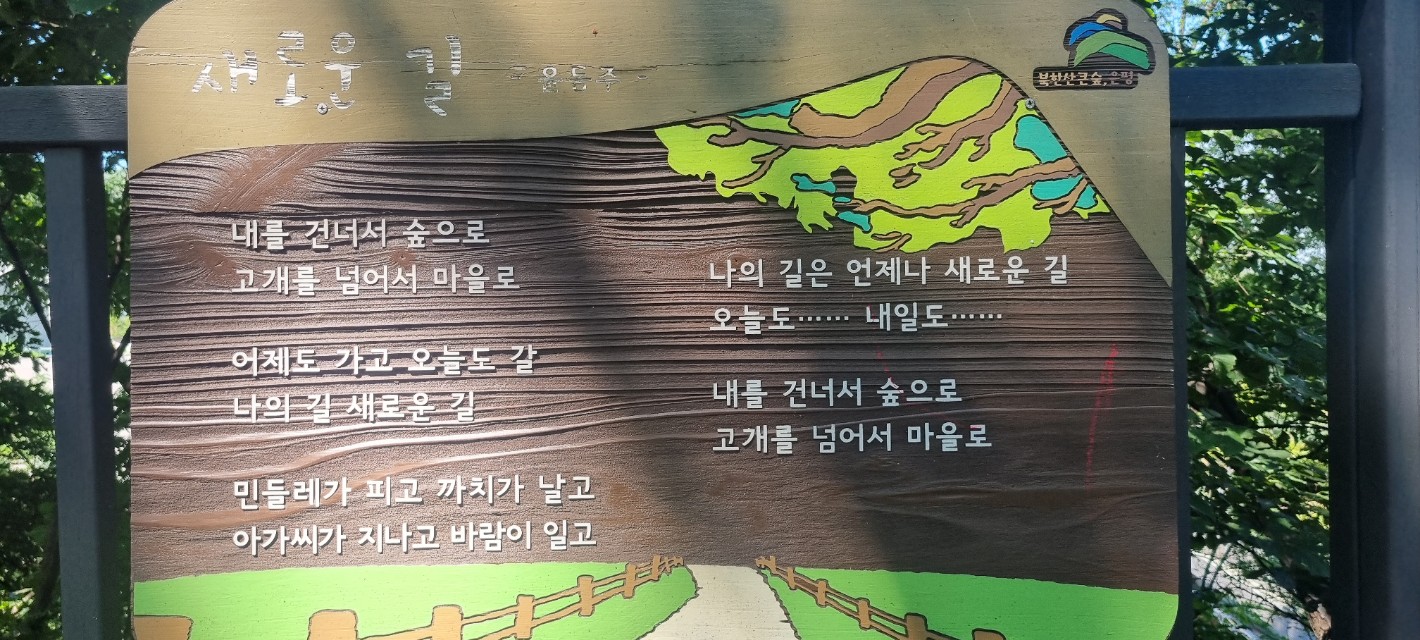 새로운 길
- 윤동주 -
북한산큰숲,은평
내를 건너서 숲으로
고개를 넘어서 마을로
어제도 가고 오늘도 갈
나의 길 새로운 길
민들레가 피고 까치가 날고
아가씨가 지나고 바람이 일고
나의 길은 언제나 새로운 길
오늘도…… 내일도……
내를 건너서 숲으로
고개를 넘어서 마을로